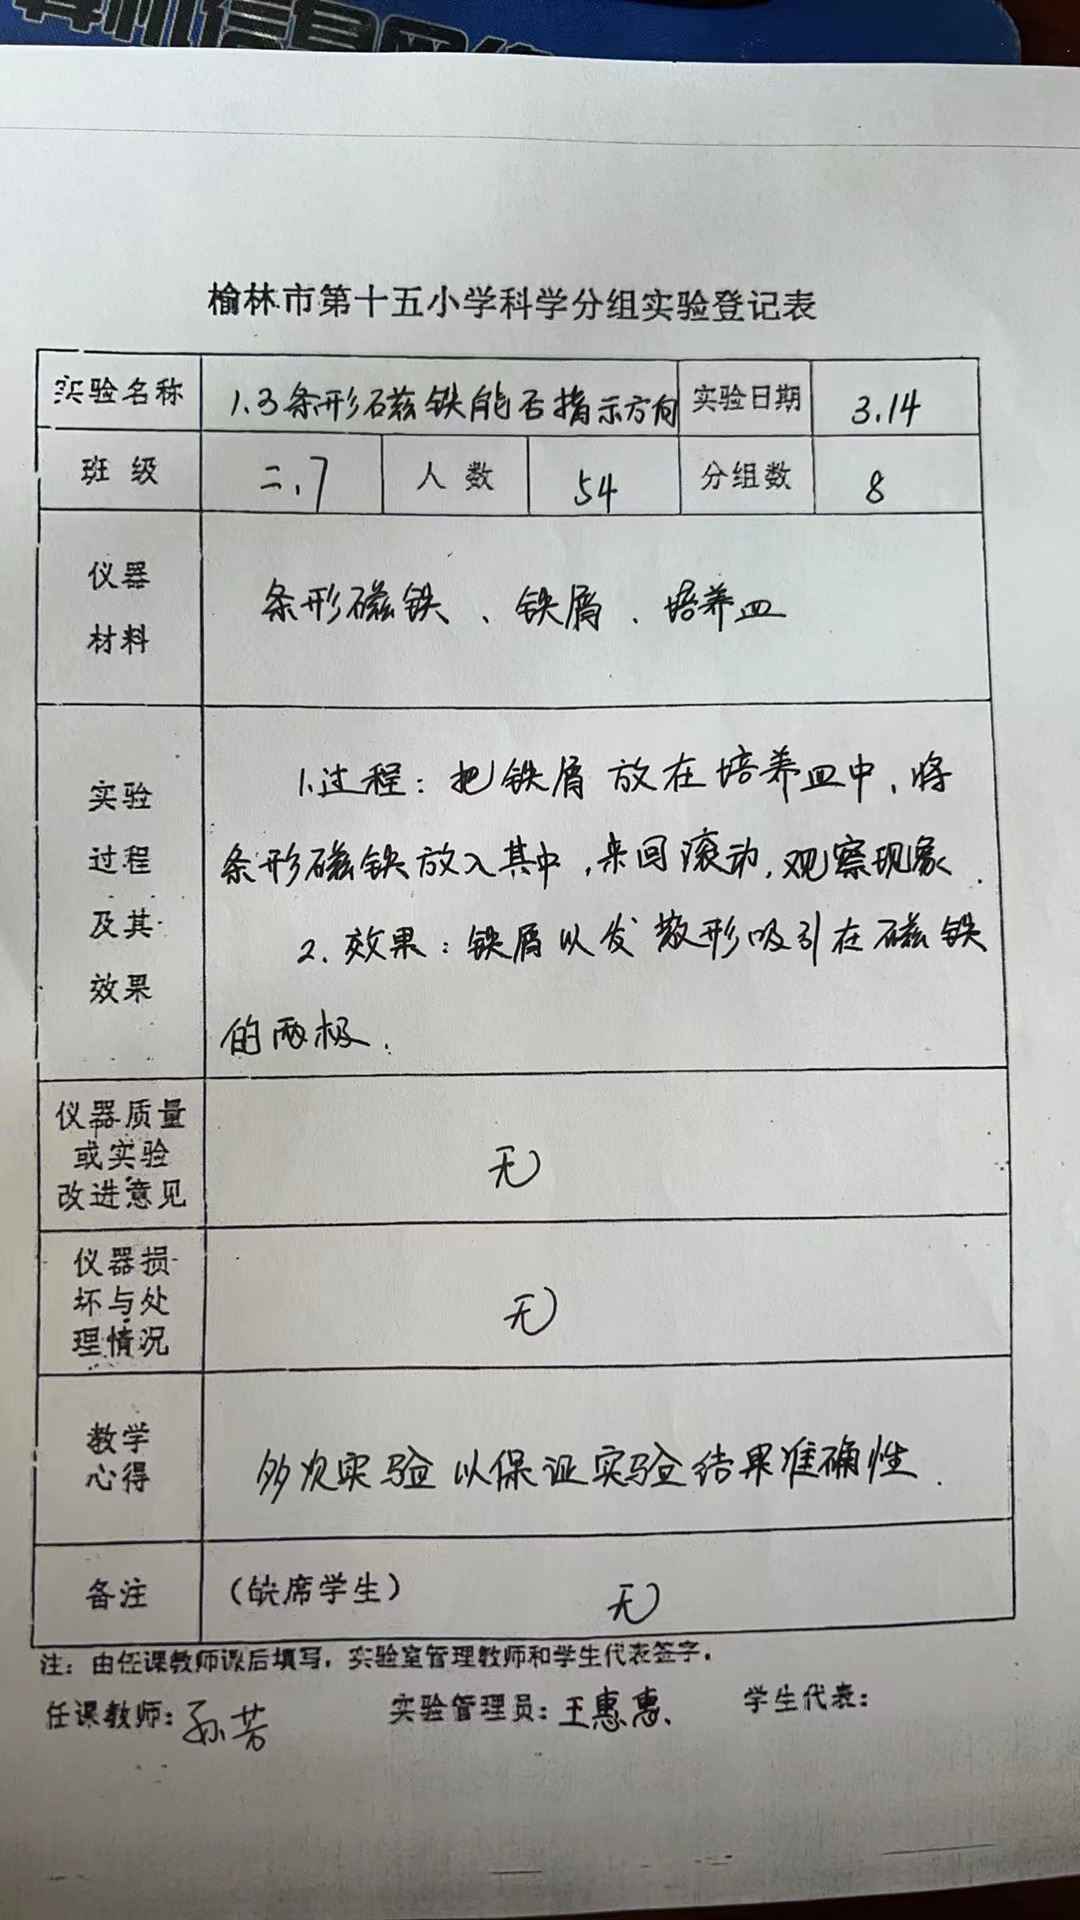 榆林市第十五小学科学分组实验登记表
实验名称 1.3条形磁铁能否指示方向 实验日期 3.14
班级 二.7 人数 54 分组数 8
仪器
材料
条形磁铁、铁屑、培养皿
实验
过程
及其
效果
1.过程：把铁屑放在培养皿中，将
条形磁铁放入其中，来回滚动，观察现象.
2.效果：铁屑以发散形吸引在磁铁
的两极.
仪器质量
或实验
改进意见
无
仪器损
坏与处
理情况
无
教学
心得
多次实验以保证实验结果准确性.
备注 （缺席学生） 无
注：由任课教师课后填写，实验室管理教师和学生代表签字。
任课教师：孙芳 实验管理员：王惠惠 学生代表：